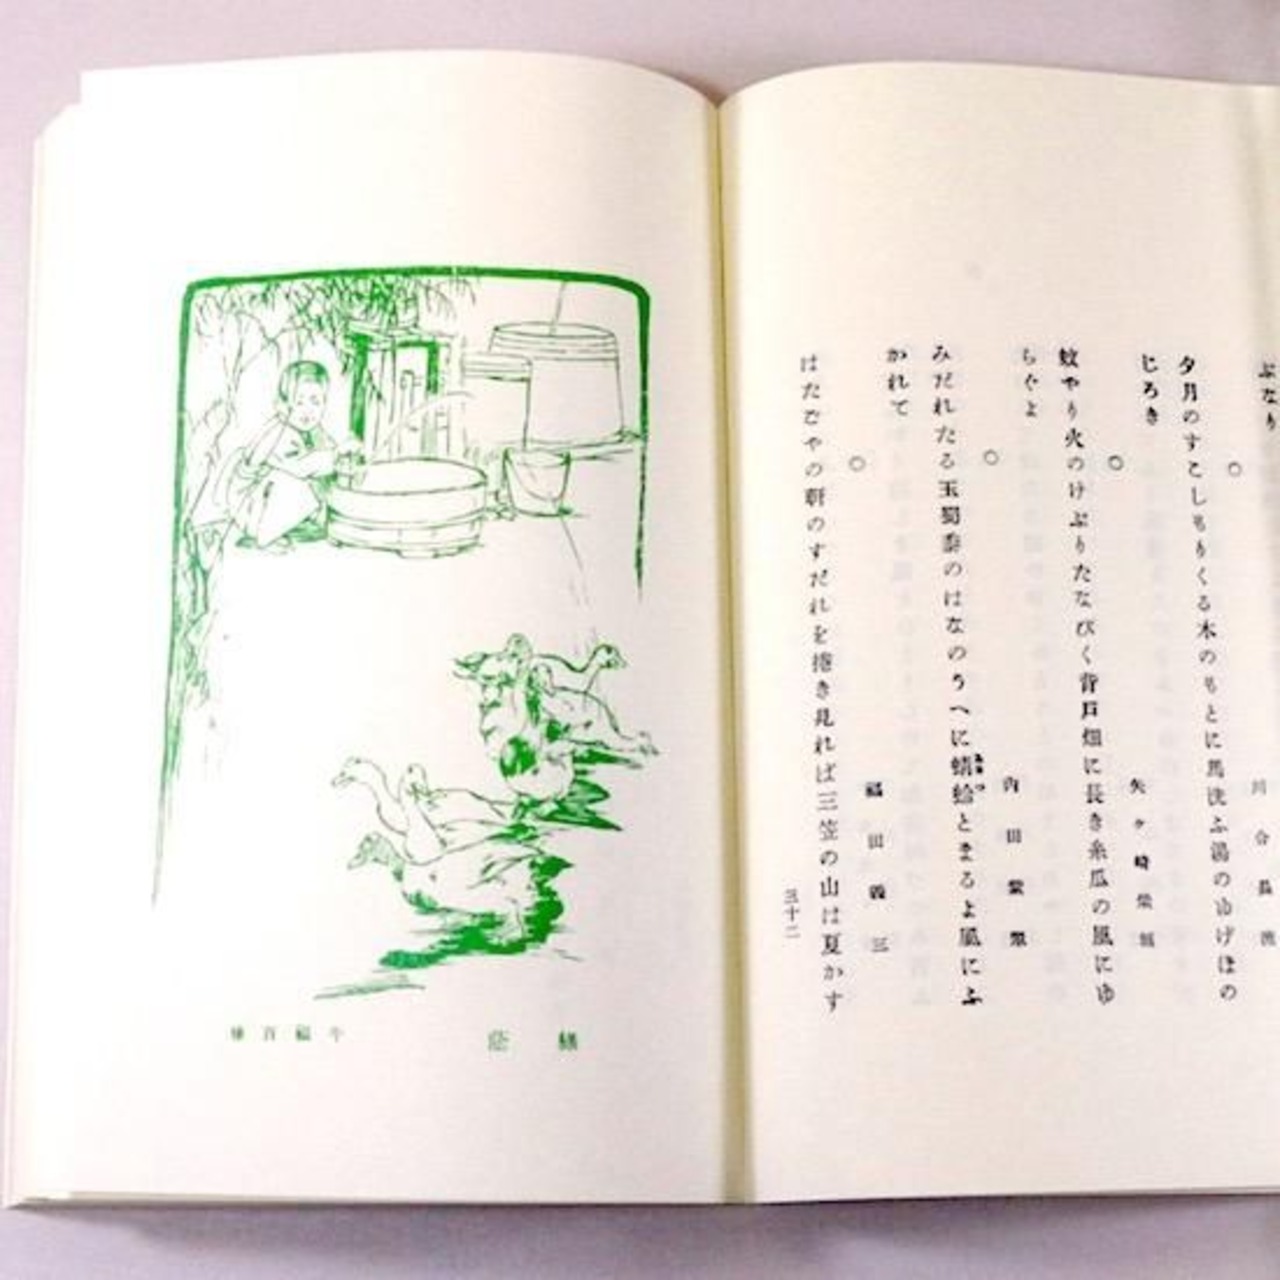 ぶなり
○
川合
夕月のすこしもりくる木のもとに馬洗ふ湯のゆげほの
じろき
○
矢ヶ崎
蚊やり火のけぶりたなびく背戸畑に長き糸瓜の風にゆ
らぐよ
○
内田紫
みだれたる玉蜀黍のはなのうへに蜻蛉とまるよ風にふ
かれて
○
福田毅三
はたごやの軒のすだれを捲き見れば三笠の山は夏かす
三十二